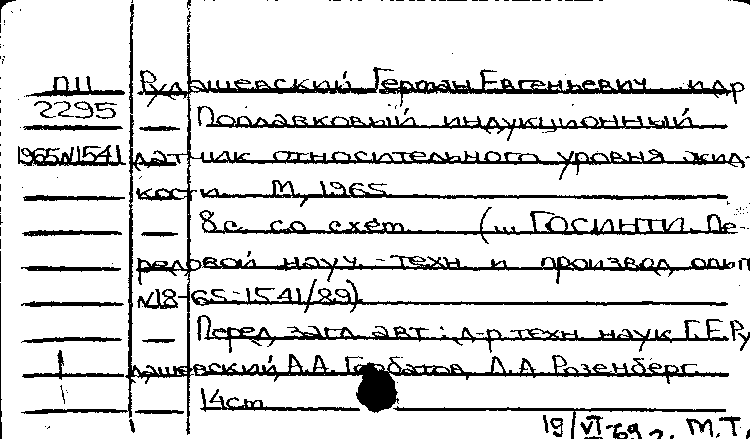 ПП Рудашевский Герман Евгеньевич и др
2295 Поплавковый индукционный
1965N1541 датчик относительного уровня жид-
кости. М, 1965
8с. со схем. (... ГОСИНТИ. Пе-
редовой науч.-техн и производ. опыт
N18-65-1541/89).
Перед загл. авт: д-р техн наук Г.Е.Ру
дашевский, А.А. Горбатов, Л.А. Розенберг
14cm
19/VI-69г. М.Т.